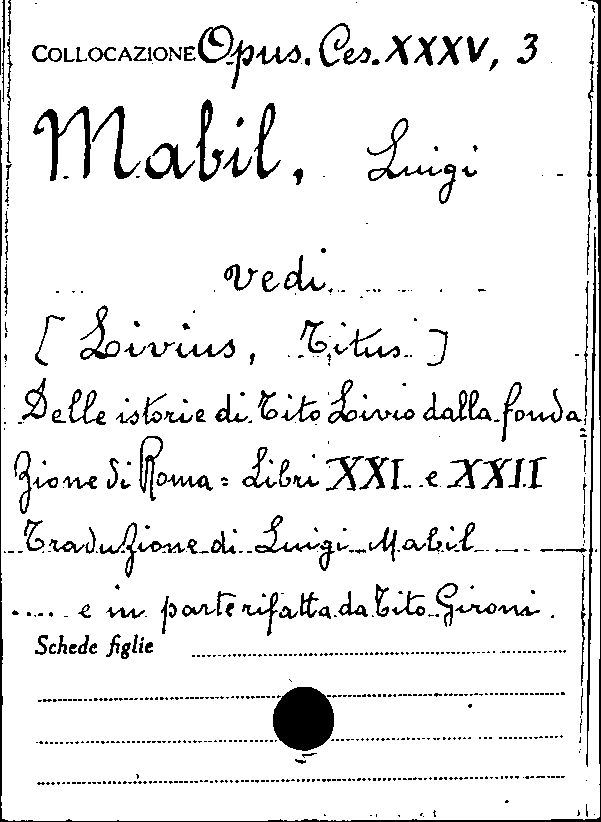 COLLOCAZIONE Opus. Ces. XXXV, 3
Mabil, Luigi
vedi
[ Livius, Titus ]
Delle istorie di Tito Livio dalla fonda
zione di Roma = Libri XXI e XXII
Traduzione di Luigi Mabil
.... e in parte rifatta da Tito Gironi.
Schede figlie